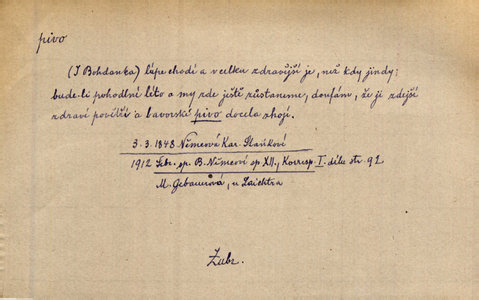 pivo
(I Bohdanka) lépe chodí a v celku zdravější je, než kdy jindy;
bude-li pohodlné léto a my zde ještě zůstaneme, doufám, že ji zdejší
zdraví povětří a bavorské pivo docela zhojí.
3. 3. 1848 Němcová Kar. Staňkové
1912 Sebr. sp. B. Němcové sp. XII., Korresp. I. dílu str. 92
M. Gebauerová, u Laichtra
Zubr.